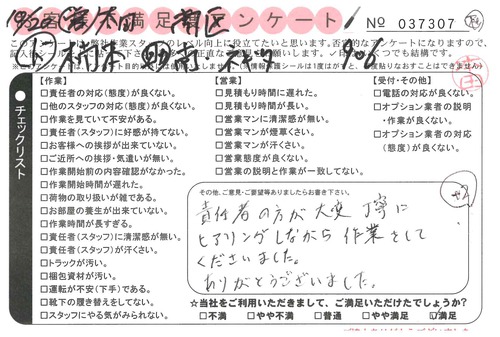 満足度アンケート!
No 037307
このアンケートは弊社作業スタッフのレベル向上に役立てたいと思います。否定的なアンケートになりますので、
チェックリスト
【作業】
□責任者の対応(態度)が良くない。
□他のスタッフの対応(態度)が良くない。
□作業を見ていて不安がある。
□責任者(スタッフ)に好感が持てない。
□お客様への挨拶が出来ていない。
□ご近所への挨拶・気遣いが無い。
□作業開始前の内容確認がなかった。
□作業開始時間が遅れた。
□荷物の取り扱いが雑である。
□お部屋の養生が出来ていない。
□作業時間が長すぎる。
□責任者(スタッフ)に清潔感が無い。
□責任者(スタッフ)が汗くさい。
□トラックが汚い。
□梱包資材が汚い。
□運転が不安(下手)である。
□靴下の履き替えをしてない。
□スタッフにやる気がみられない。
【営業】
□見積もり時間に遅れた。
□見積もり時間が長い。
□営業マンに清潔感が無い。
□営業マンが煙草くさい。
□営業マンが汗くさい。
□営業態度が良くない。
□営業の説明と作業が一致してない。
【受付・その他】
□電話の対応が良くない。
□オプション業者の説明
・作業が良くない。
□オプション業者の対応
(態度)が良くない。
その他、ご意見・ご要望等ありましたらお書き下さい。
責任者の方が大変丁寧に
ヒアリングしながら作業をして
くださいました。
ありがとうございました。
☆当社をご利用いただきまして、ご満足いただけたでしょうか?
□不満 □やや不満 □普通 □やや満足 ☑満足